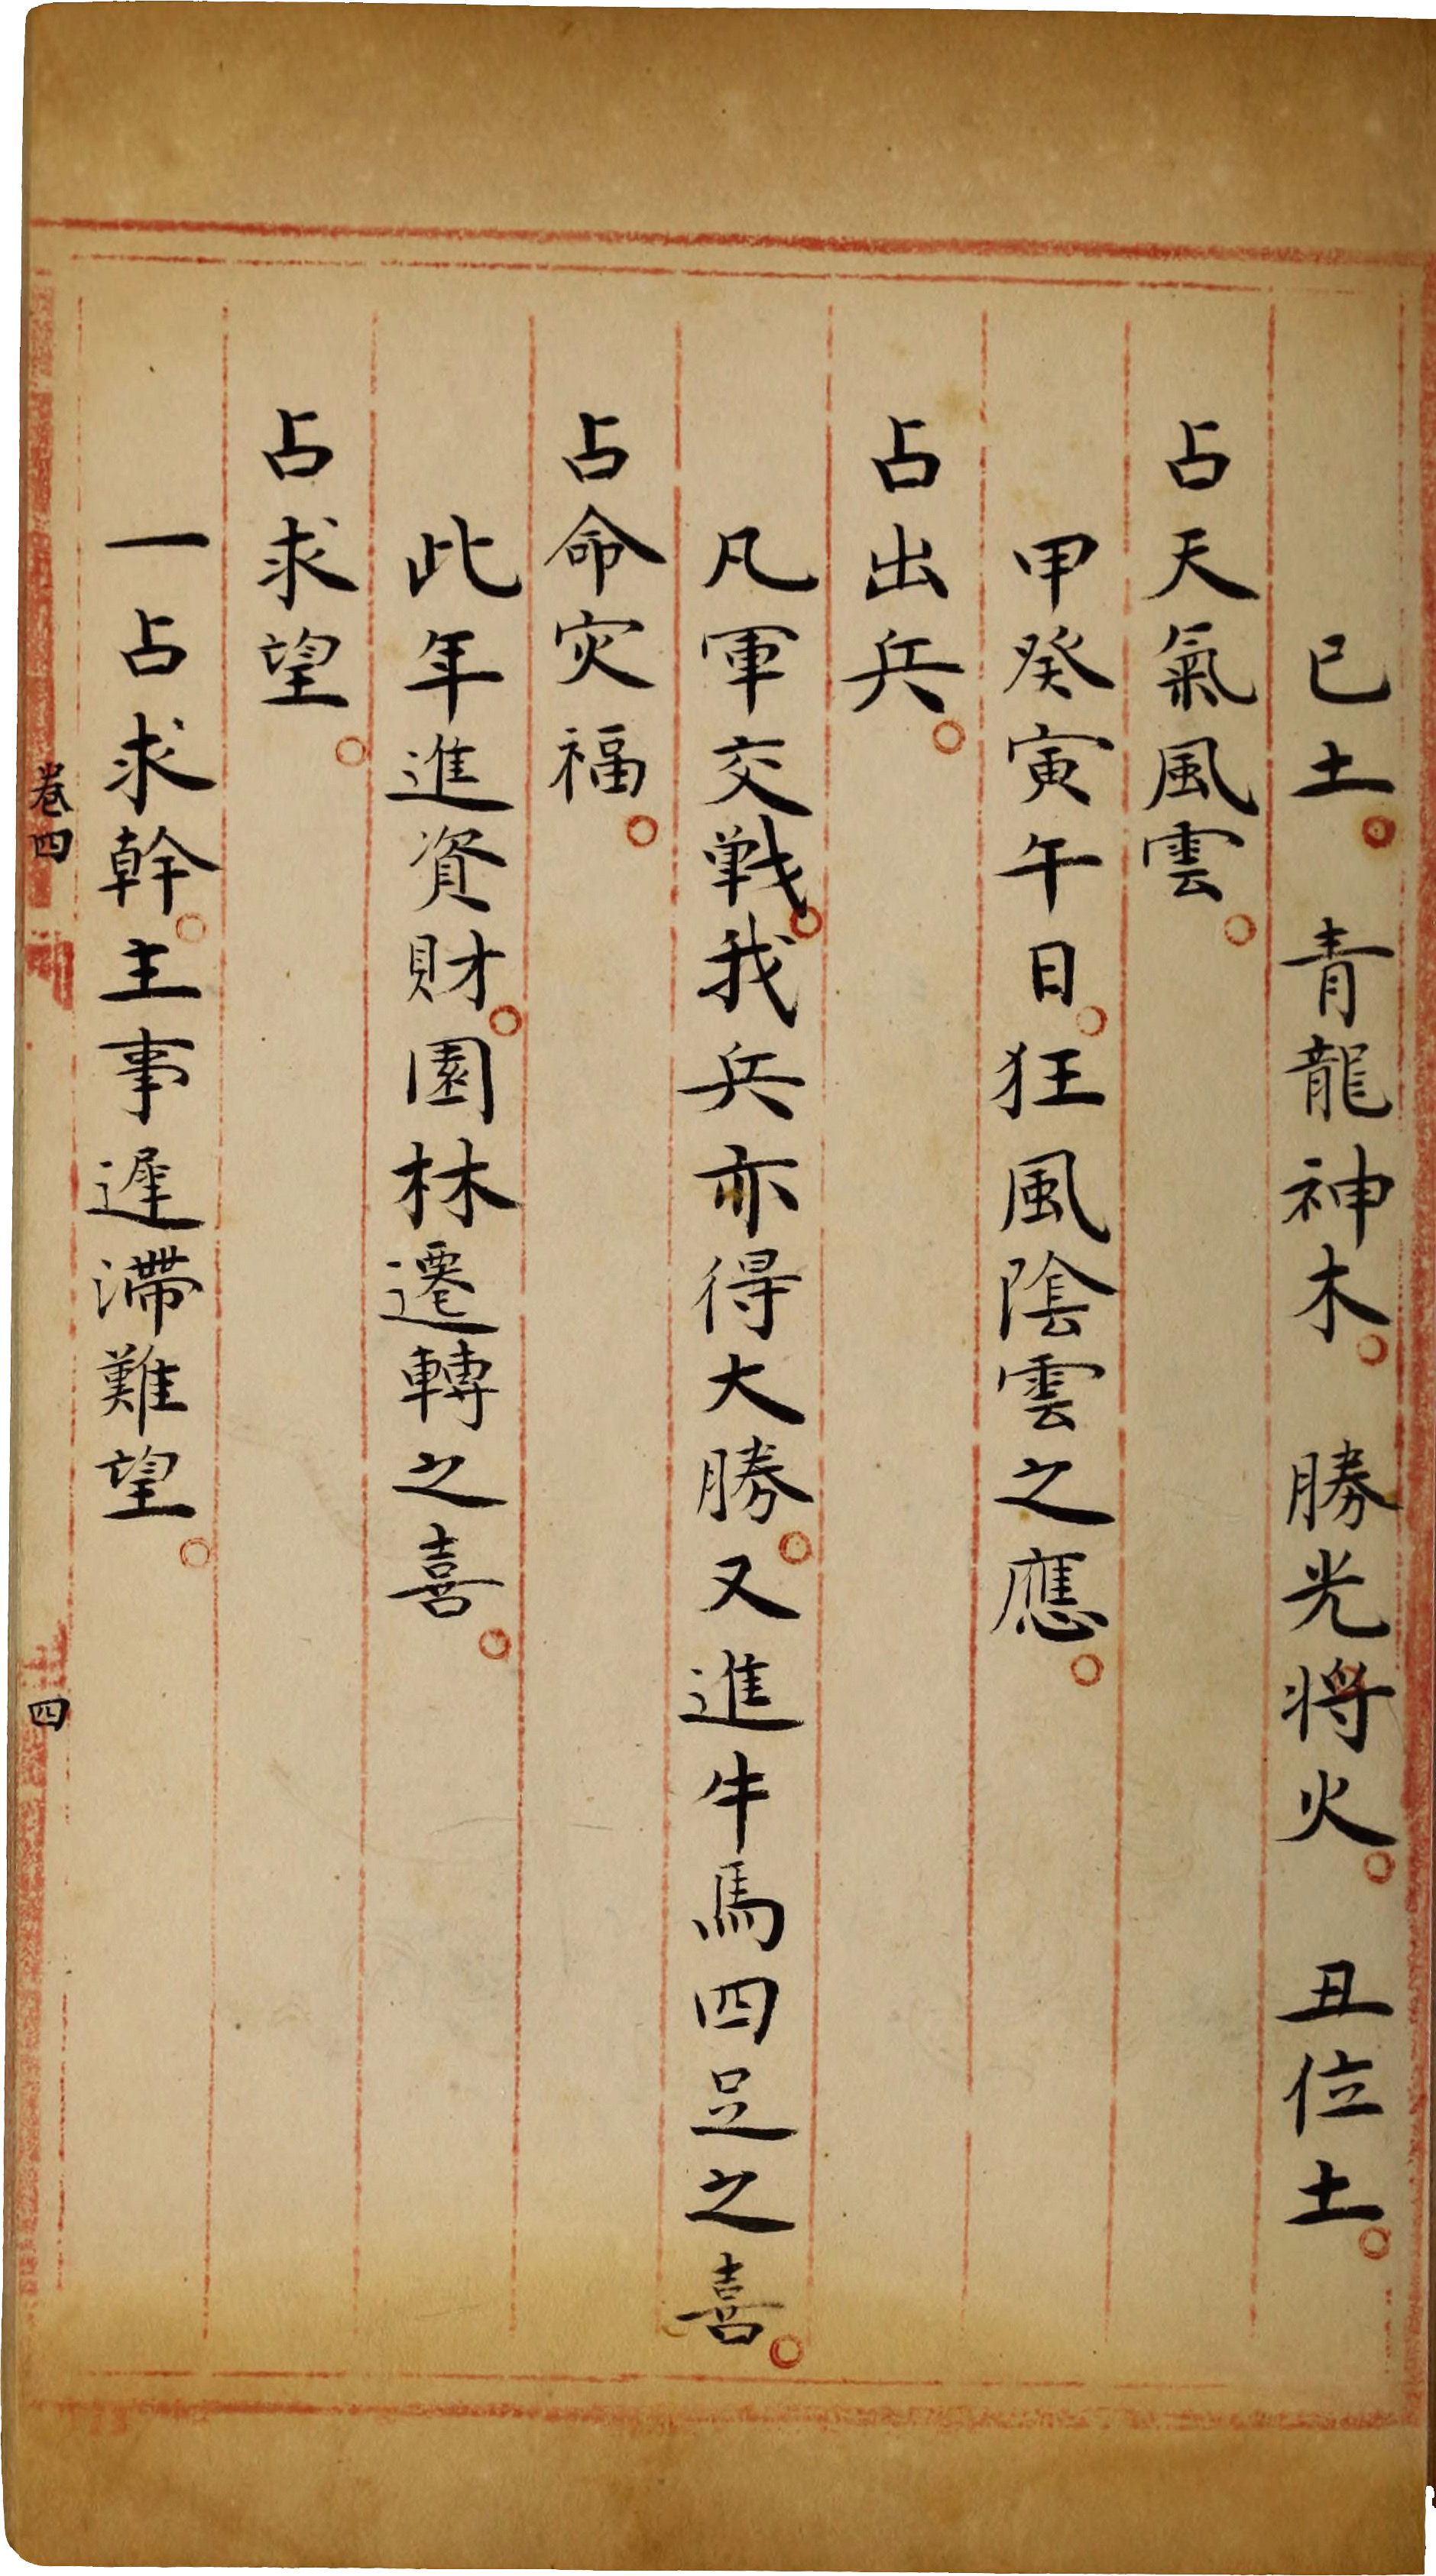 已土。青龍神木。勝光将火。丑位土。
占天氣風雲。
甲癸寅午日。狂風陰雲之應。
占出兵。
凡軍交戦。我兵亦得大勝。又進牛馬四足之喜。
占命灾福。
此年進資財。園林遷轉之喜。
占求望。
一占求幹。主事遲滯難望。
卷四
四